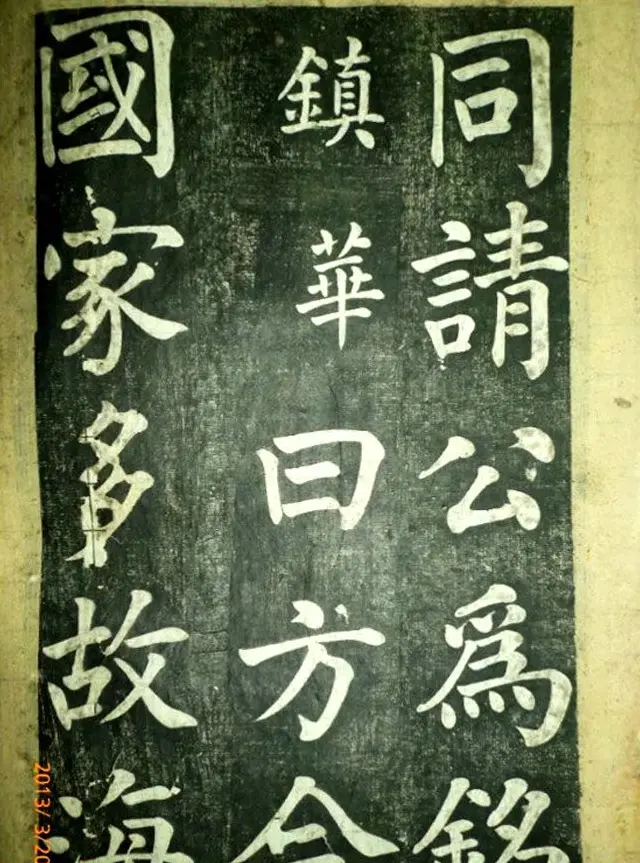 同請公爲銘
鎮華曰方今
國家多故海
2013/3/20